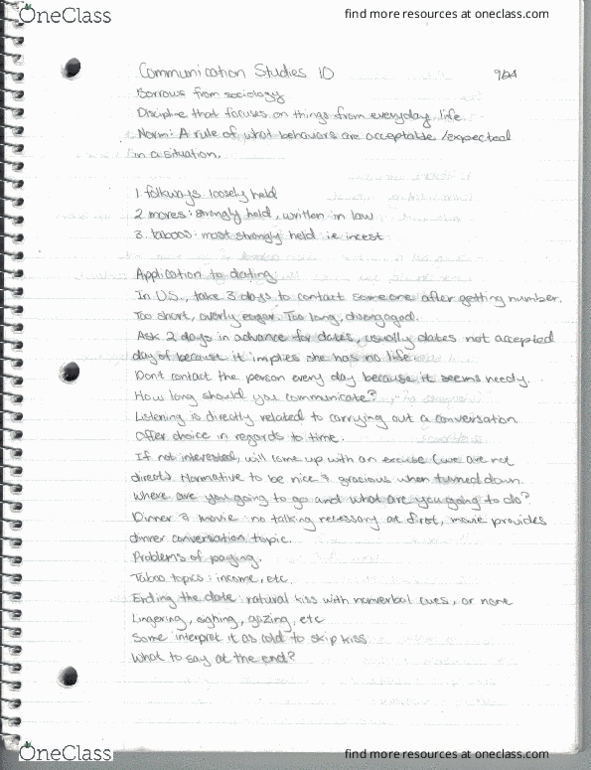 OneClass
find more resources at oneclass.com
Communication Studies 10
9/24
Borrows from sociology
Discipline that focuses on things from everyday life.
Norm: A rule of what behaviors are acceptable /expected
in a situation.
1 folkways loosely held
2 mores: strongly held, written in law
3. taboos: most strongly held ie incest
Application to dating
In U.S., take 3 days to contact someone after getting number.
Too short, overly eager. Too long, disengaged.
Ask 2 days in advance for dates, usually dates not accepted
day of because it implies she has no life
Dont contact the person every day because it seems needy.
How long should you communicate?
Listening is directly related to carrying out a conversation
Offer choice in regards to time.
If not interested, will come up with an excuse (we are not
direct). Normative to be nice & gracious when turned down.
Where are you going to go and what are you going to do?
Dinner & movie: no talking necessary at first, movie provides
dinner conversation topic.
Problems of paying.
Taboo topics: income, etc.
Ending the date: natural kiss with nonverbal cues, or none
Lingering, sighing, gazing, etc
Some interpret it as cold to skip kiss
What to say at the end?
OneClass
find more resources at oneclass.com